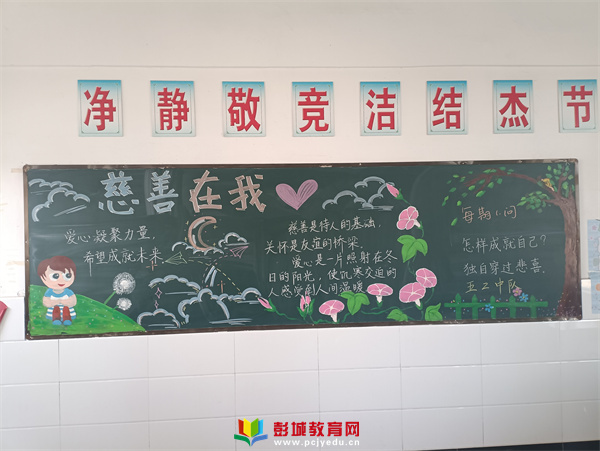 净 静 敬 竞 洁 结 杰 节
慈善在我
爱心凝聚力量，
希望成就未来
慈善是待人的基础，
关怀是友谊的桥梁。
爱心是一片照射在冬
日的阳光，使饥寒交迫的
人感受到人间温暖
每期一问
怎样成就自己？
独自穿过悲喜
五2中队
彭城教育网
www.pcjyedu.cn